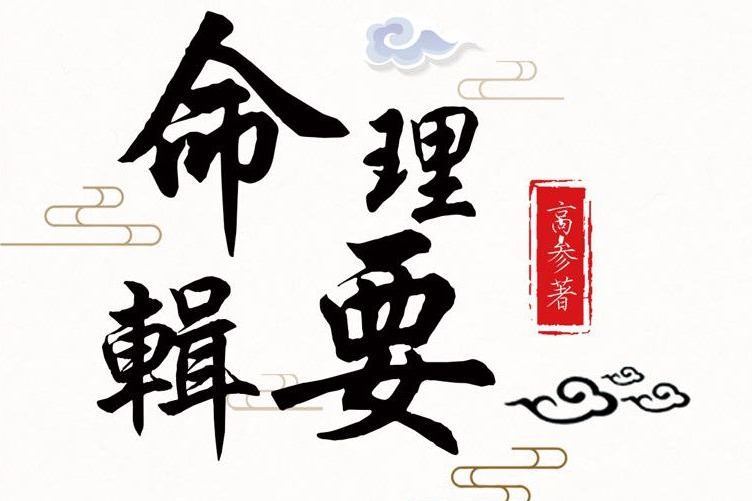 命理
輯要
高参著